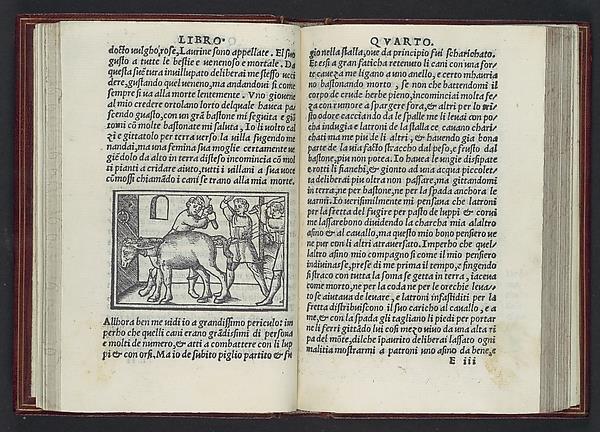 LIBRO.
docto uulgho, rose, Laurine sono appellate. El suo
gusto a tutte le bestie e uenenoso e mortale. Da
questa siē tura inuillupato deliberai me stesso ucci
dere, gustando quel ueneno, ma andandoui si come
sempre si ua alla morte lentemente. Vno giouene
al mio credere ortolano lorto delquale haueua pa
scendo guasto, con un grā bastone mi seguita e giō
tomi cō molte bastonate mi saluta. Io li uolto cal
zi e gittatolo per terra uerso la uilla fugendo me
nandai, ma una femina sua moglie certamente ue
giēdolo da alto in terra disteso incomincia cō mol
ti pianti a cridare aiuto, tutti i uillani a sua uoce
cōmossi chiamādo i cani se trano alla mia morte.
Allhora ben me uidi io a grandissimo periculo: im
perho che quelli cani erano grādissimi di persona
e molti de numero, & atti a combattere con li lup
pi & con orsi. Ma io de subito piglio partito & fu
QVARTO.
gio nella stalla, oue da principio fui scharichato.
Et essi a gran faticha retenuto li cani con una for-
te caueza me ligano a uno anello, e certo mhauria
no bastonando morto, se non che battendomi il
corpo de crude herbe pieno, incominciai molta fe-
za con rumore a spargere fora, & altri per lo tri-
sto odore cacciando da le spalle me li leuai con po-
cha indugia e latroni de la stalla ce cauano chari-
chati ma me piu de li altri, & hauendo gia bona
parte de la uia facto straccho dal peso, e frusto dal
bastone, piu non potea. Io hauea le ungie dissipate
e rotti li fianchi, & gionto ad una acqua piccolet-
ta deliberai piu oltra non passare, ma gittandomi
in terra, ne per bastone, ne per la spada anchora le
uarmi. Io uerisimilmente mi pensaua che latroni
per la fretta del fugire per pasto de luppi & corui
me lassarebono diuidendo la charcha mia alaltro
asino & al cauallo, ma questo mio bono pensiero ue
ne pur con li altri attrauersato. Imperho che quel-
laltro asino mio compagno si come il mio pensiero
indiuinasse, prese di me prima il tempo, e fingendo
si straco con tutta la soma se getta in terra, iaceua
come morto, ne per la coda ne per le orechie leuar-
to se aiutaua de leuare, e latroni infastiditi per la
fretta distribuiscono il suo caricho al cauallo, e a
me, & con la spada gli tagliano li piedi per portar
ne li ferri gittādo lui cosi mezo uiuo da una alta ri
pa del mōte, dilche ipaurito deliberai lassato ogni
malitia mostrarmi a patroni uno asino da bene, e
E iii